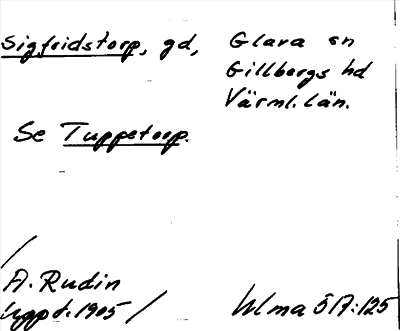 Sigfridstorp, gd, Glava sn
Gillbergs hd
Värml. län.
Se Tuppetorp.
/
A. Rudin
uppt. 1905 /
Ulma 5A:125